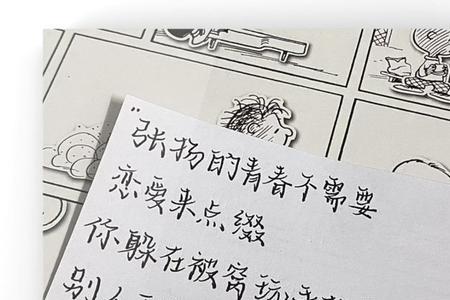 "张扬的青春不需要
恋爱来点缀
你躲在被窝玩
别